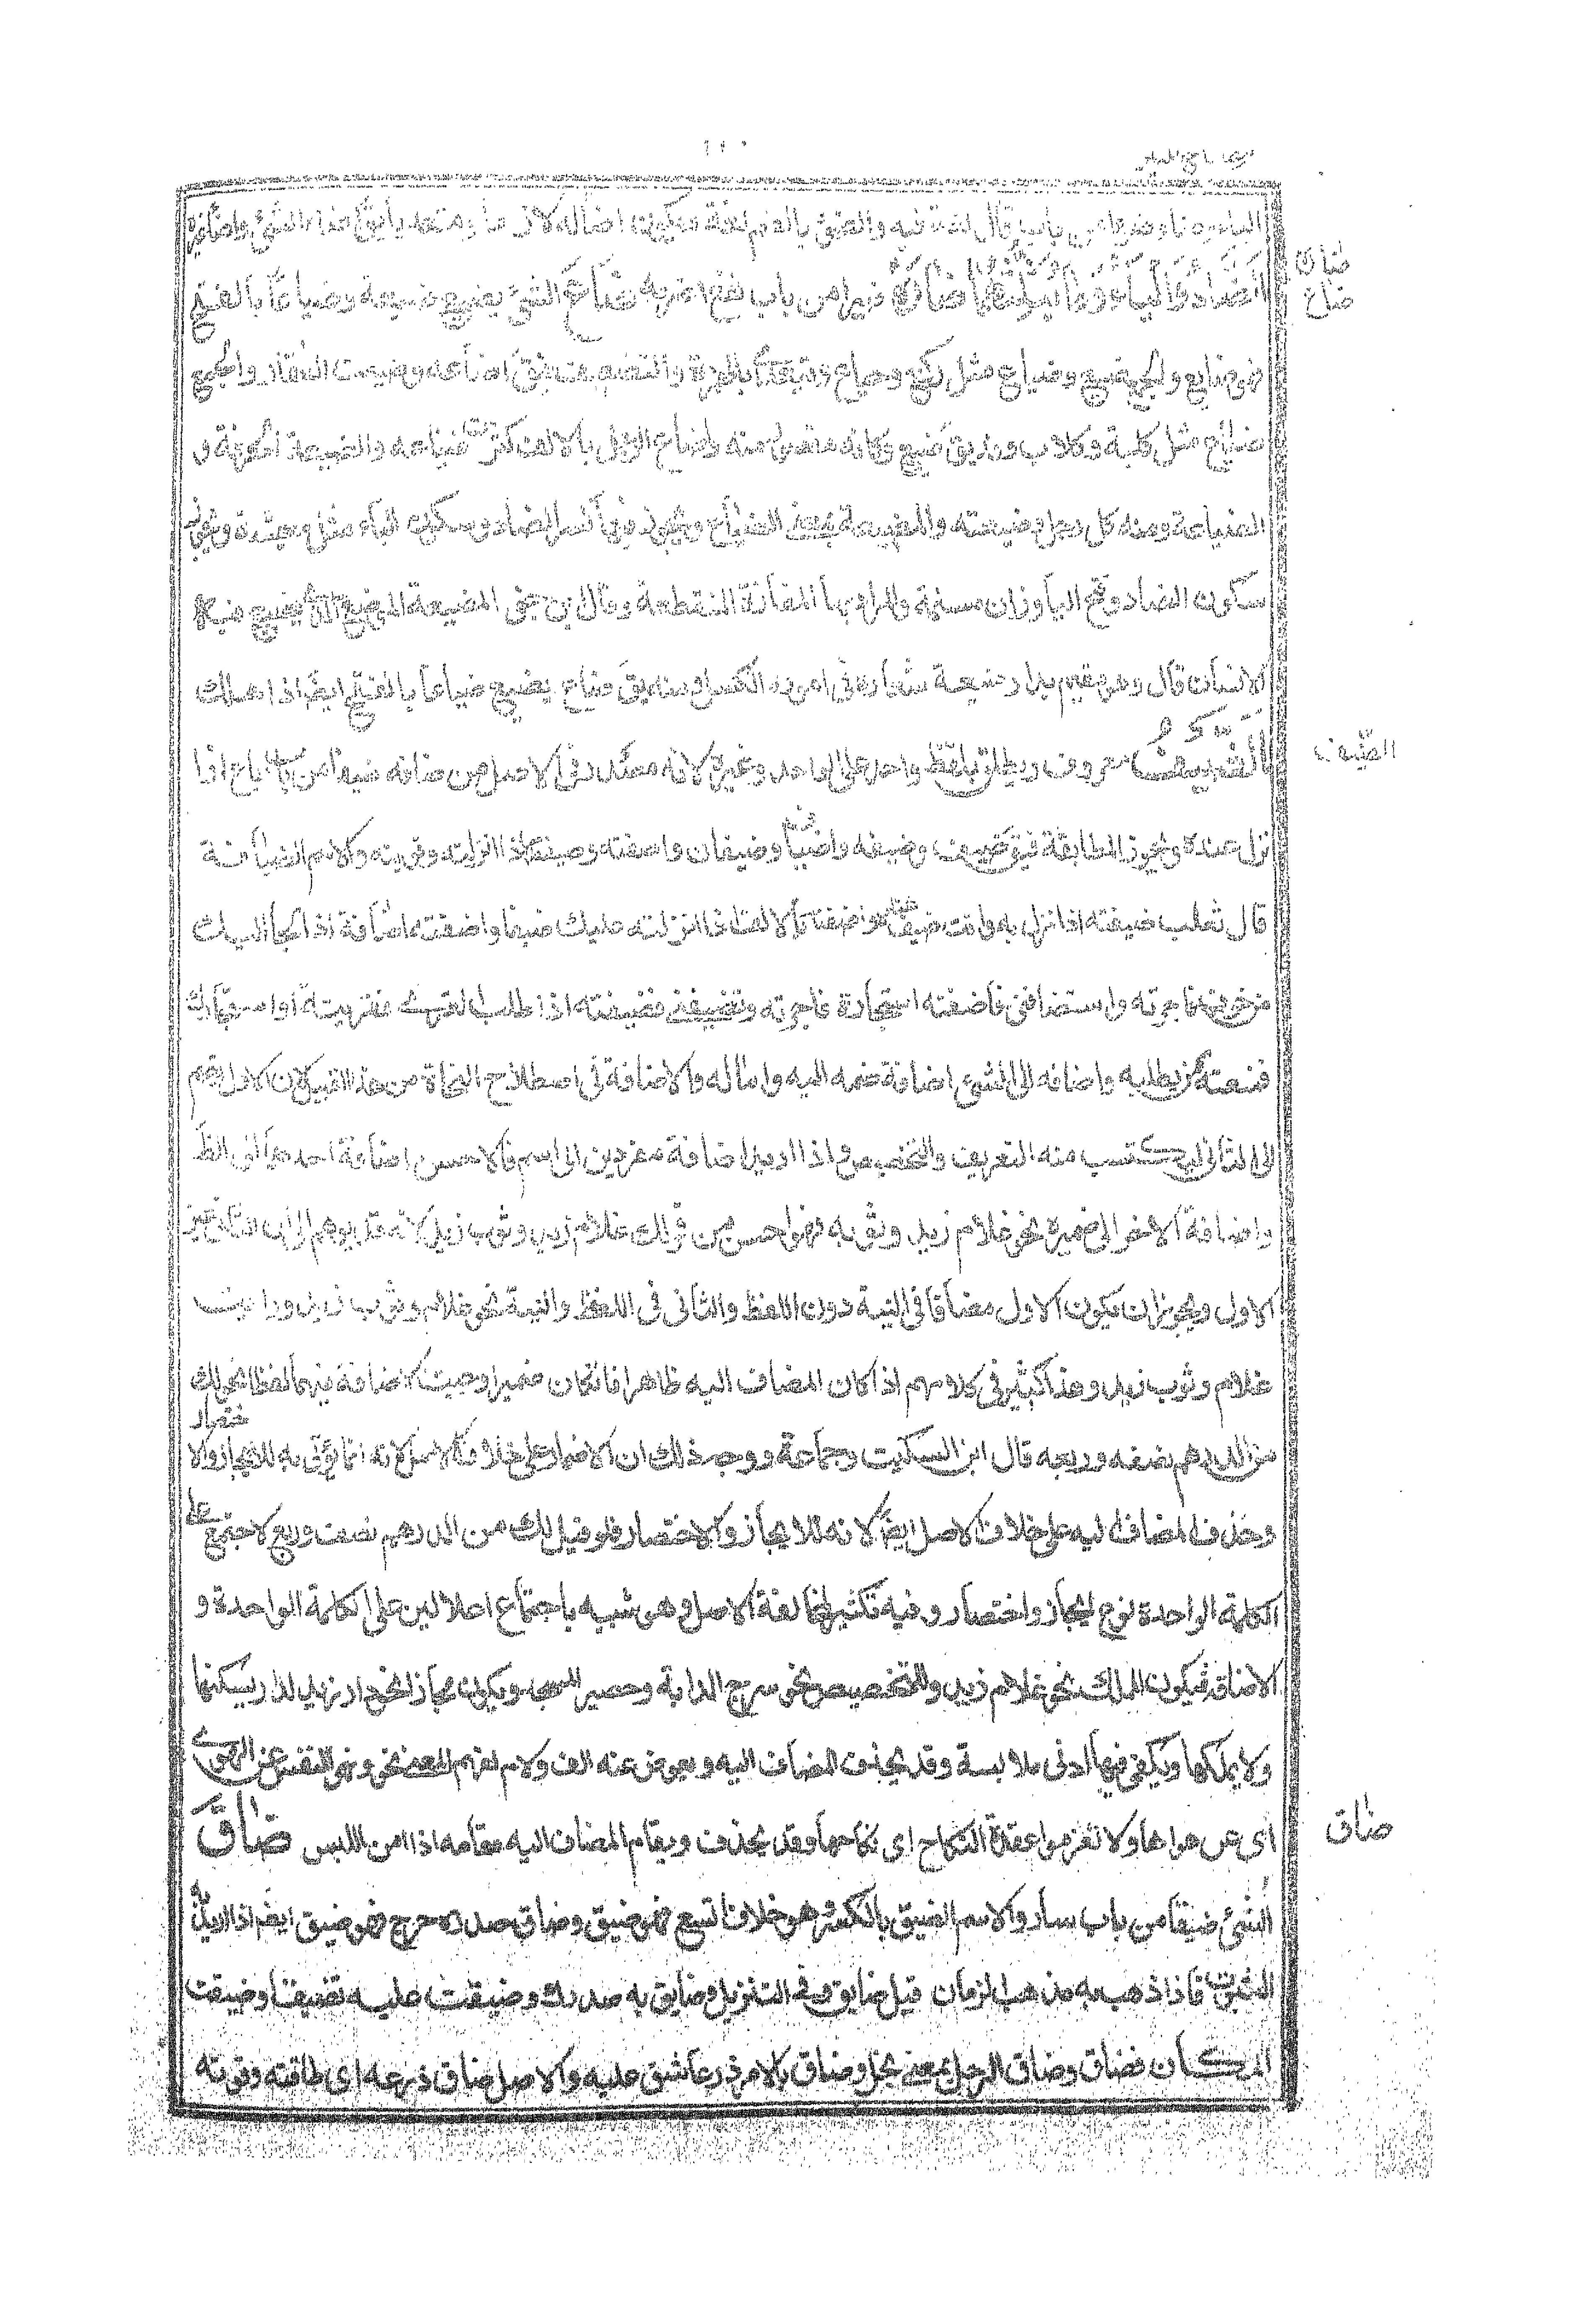 الضاد والياء وما يثلثهما ضاره ضيرا من باب باع اضربه ضاع الشئ يضيع ضيعة وضياعا بالفتح
ضاع
فهو ضايع والجمع ضيع وضياع مثل ركع وجياع
ضياع مثل كلبة وكلاب وقد يق ضيع وكانه مقصور منه واضاع الرجل بالالف كثرت ضياعه والضيعة الحرفة و
الصناعة ومنه كل رجل وضيعته والمضيعة بمعنى الضياع ويجوز فيها كسر الضاد وسكون الياء مثل معيشة ويجوز
سكون الضاد وفتح اليا وزان مسلمة والمراد بها المفازة المنقطعة وقال ابن جنى المضيعة الموضع يضيع فيه
الانسان قال وهو مقيم بدار مضيعة شعاره فى اموره الكسل ومنه يق ضاع يضيع ضياعا بالفتح ايضا اذا هلك
الضيف
الضيف معروف ويطلق بلفظ واحد على الواحد وغيره لانه مصدر فى الاصل من ضافه ضيفا من باب باع اذا
نزل عنده ويجوز المطابقة فيق ضيف وضيفه واضياف وضيفان واضفته وضيفته اذا انزلته وقريته والاسم الضيافة
قال ثعلب ضيفته اذا نزل به وانت ضيف عنده واضفته بالالف اذا انزلته عليك ضيفا واضفته اضافة اذا لجأ اليك
من خوف فاجرته واستضافنى فاضفته استجارة فاجرته وتضيفنى فضيفته اذا طلب القرى فقريته او استجارك
فمنعته ممن يطلبه واضافه الى الشئ اضافة ضمه اليه واماله والاضافة فى اصطلاح النحاة من هذا لان الاول يضم
الى الثانى ليكتسب منه التعريف والتخصيص واذا اريد اضافة مفردين الى اسم فالاحسن اضافة احدهما الى الظ
واضافة الاخر الى ضميره نحو غلام زيد وثوبه فهو احسن من قولك غلام زيد وثوب زيد لانه قد يوهم ان الثانى غير
الاول ويجوز ان يكون الاول مضافا فى النية دون اللفظ والثانى فى اللفظ والنية نحو غلام وثوب زيد ورايت
غلام وثوب زيد وهذا كثير فى كلامهم اذا كان المضاف اليه ظاهرا فان كان ضميرا وجبت الاضافة فيهما لفظا نحو لك
من الدرهم نصفه وربعه قال ابن السكيت وجماعة ووجه ذلك ان الاضمار على خلاف الاصل لانه انما يؤتى به للايجاز والاختصار
وحذف المضاف اليه على خلاف الاصل ايضا لانه للايجاز والاختصار فلو قيل لك من الدرهم نصف وربع لاجتمع على
الكلمة الواحدة نوع ايجاز واختصار وفيه تكثير لمخالفة الاصل وهو شبيه باجتماع اعلالين على الكلمة الواحدة و
الاضافة فيكون للملك نحو غلام زيد وللتخصيص نحو سرج الدابة وحصير المسجد ويكون مجازا نحو دار زيد لدار يسكنها
ولا يملكها ويكفى فيها ادنى ملابسة وقد يحذف المضاف اليه ويعوض عنه الف ولام لفهم المعنى نحو ونهى النفس عن الهوى
ضاق
اى عن هواها ولا تعزموا عقدة النكاح اى نكاحها وقد يحذف ويقام المضاف اليه مقامه اذا امن اللبس ضاق
الشئ ضيقا من باب سار والاسم الضيق بالكسر وهو خلاف اتسع فهو ضيق وضاق صدره حرج فهو ضيق ايضا اذا اريد به
الثبوت فاذا ذهب به مذهب الزمان قيل ضايق وفى التنزيل وضايق به صدرك وضيقت عليه تضييقا وضيقت
المكان فضاق وضاق الرجل بمعنى بخل وضاق بالامر ذرعا شق عليه والاصل ضاق ذرعه اى طاقته وقوته